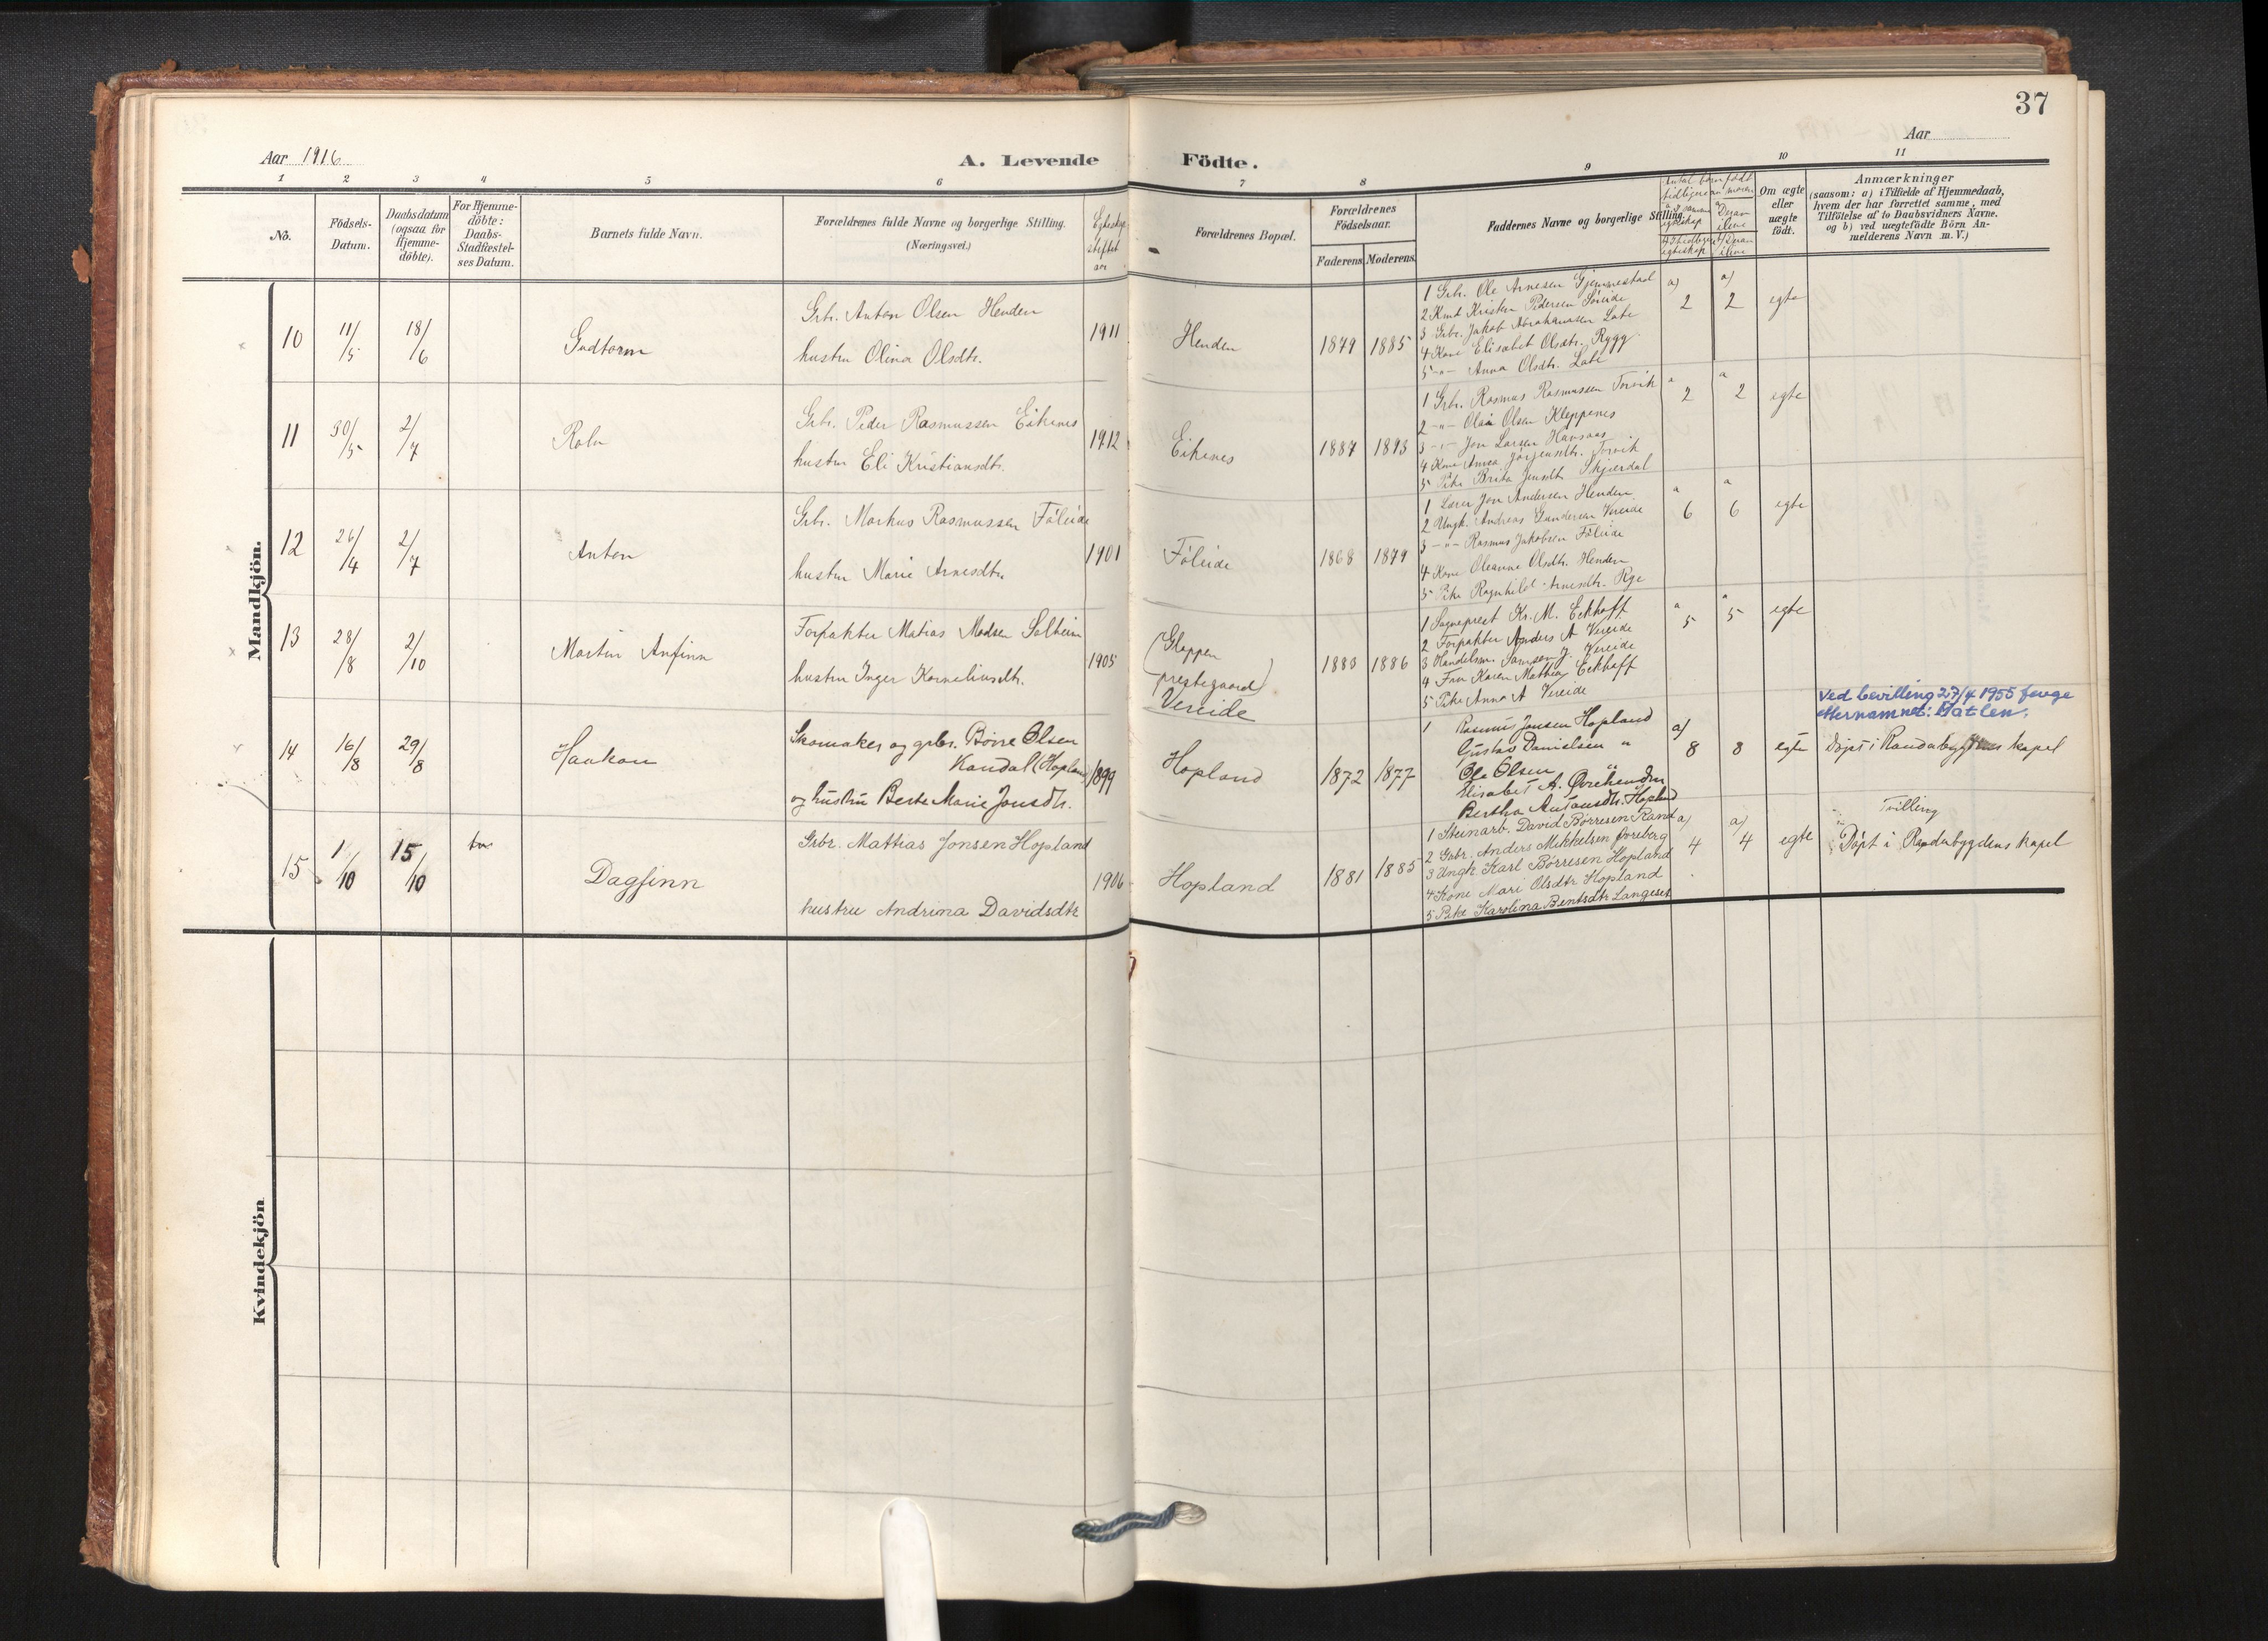 37
Aar 1916
A. Levende Födte.
Aar
1 2 3 4 5 6 7 8 9 10 11
No.
Födsels-
Datum.
Daabsdatum
(ogsaa for
Hjemme-
döbte).
For Hjemme-
döbte:
Daabs-
Stadfæstel-
ses Datum.
Barnets fulde Navn.
Forældrenes fulde Navne og borgerlige Stilling.
(Næringsvei.)
stiftet
aar
Forældrenes Bopæl.
Forældrenes
Födselsaar.
Faderens Moderens
Faddernes Navne og borgerlige Stilling.
Antal barn födt
tidligere av moren
Om ægte
eller
uægte
födt.
Anmærkninger
(saasom: a) i Tilfælde af Hjemmedaab,
hvem der har forrettet samme, med
Tilföielse af to Daabsvidners Navne.
og b) ved uægtefödte Börn An-
melderens Navn m.V.)
Mandkjön.
10 11/5 18/6 Gudtorm
Grb. Anton Olsen Henden
hustru Olina Olsdtr.
1911 Henden 1879 1885
1 Grb. Ole Arnesen Gjemmestad
2 Kand Kristen Pedersen Søreide
3 Grb. Jakob Abrahamsen Late
4 Kone Elisabet Olsdtr. Rygg
5 -"- Anna Olsdtr. Late
a) 2 a) 2 egte
11 30/5 2/7 Rolv
Grb. Peder Rasmussen Eikenes
hustru Eli Kristiansdtr.
1912 Eikenes 1887 1893
1 Grb. Rasmus Rasmussen Torvik
2 -"- Olai Olsen Kleppenes
3 -"- Jon Larsen Hansnes
4 Kone Anna Jörgensdtr. Torvik
5 Pike Brita Jensdtr. Skjærdal
a 2 a 2 egte
12 26/4 2/7 Anton
Grb. Markus Rasmussen Föleide
hustru Marie Arnesdtr.
1901 Föleide 1868 1879
1 Lærer Jon Andersen Henden
2 Ungk. Andreas Gundersen Vereide
3 -"- Rasmus Jakobsen Föleide
4 Kone Oleanna Olsdtr. Henden
5 Pike Ragnhild Arnesdtr. Rye
a 6 a 6 egte
13 28/8 2/10 Martin Anfinn
Forpakter Matias Madsen Solheim
hustru Inger Korneliusdtr.
1905
(Gloppen
prestegaard)
Vereide
1883 1886
1 Sogneprest Kr. M. Eckhoff
2 Forpakter Anders A Vereide
3 Handelsm. Samson J. Vereide
4 Fru Karen Mathea Eckhoff
5 Pike Anna A Vereide
a 5 a 5 egte
Ved bevilling 27/4 1955 fenge
etternamnet: Hatlen.
14 16/8 29/8 Haakon
Skomaker og grbr. Börre Olsen
Kandal (Hopland)
og hustru Berte Marie Jonsdtr.
1899 Hopland 1872 1877
1 Rasmus Jonsen Hopland
Gustav Danielsen "
Ole Olsen "
Elisabet A. Øvrehenden
Bertha Antonsdtr. Hopland
a) 8 8 egte Døpt i Randabygdens kapel
15 1/10 15/10 Dagfinn
Grbr. Mattias Jonsen Hopland
hustru Andrina Davidsdtr
1906 Hopland 1881 1885
1 Steinarb. David Børresen Kand
2 Grbr. Anders Mikkelsen Øvreberg
3 Ungk Karl Børresen Hopland
4 Kone Mari Olsdtr Hopland
5 Pike Karolina Bentsdtr Langeset
a) 4 a) 4 egte
Tvilling
Döpt i Randabygdens kapel
Kvindekjön